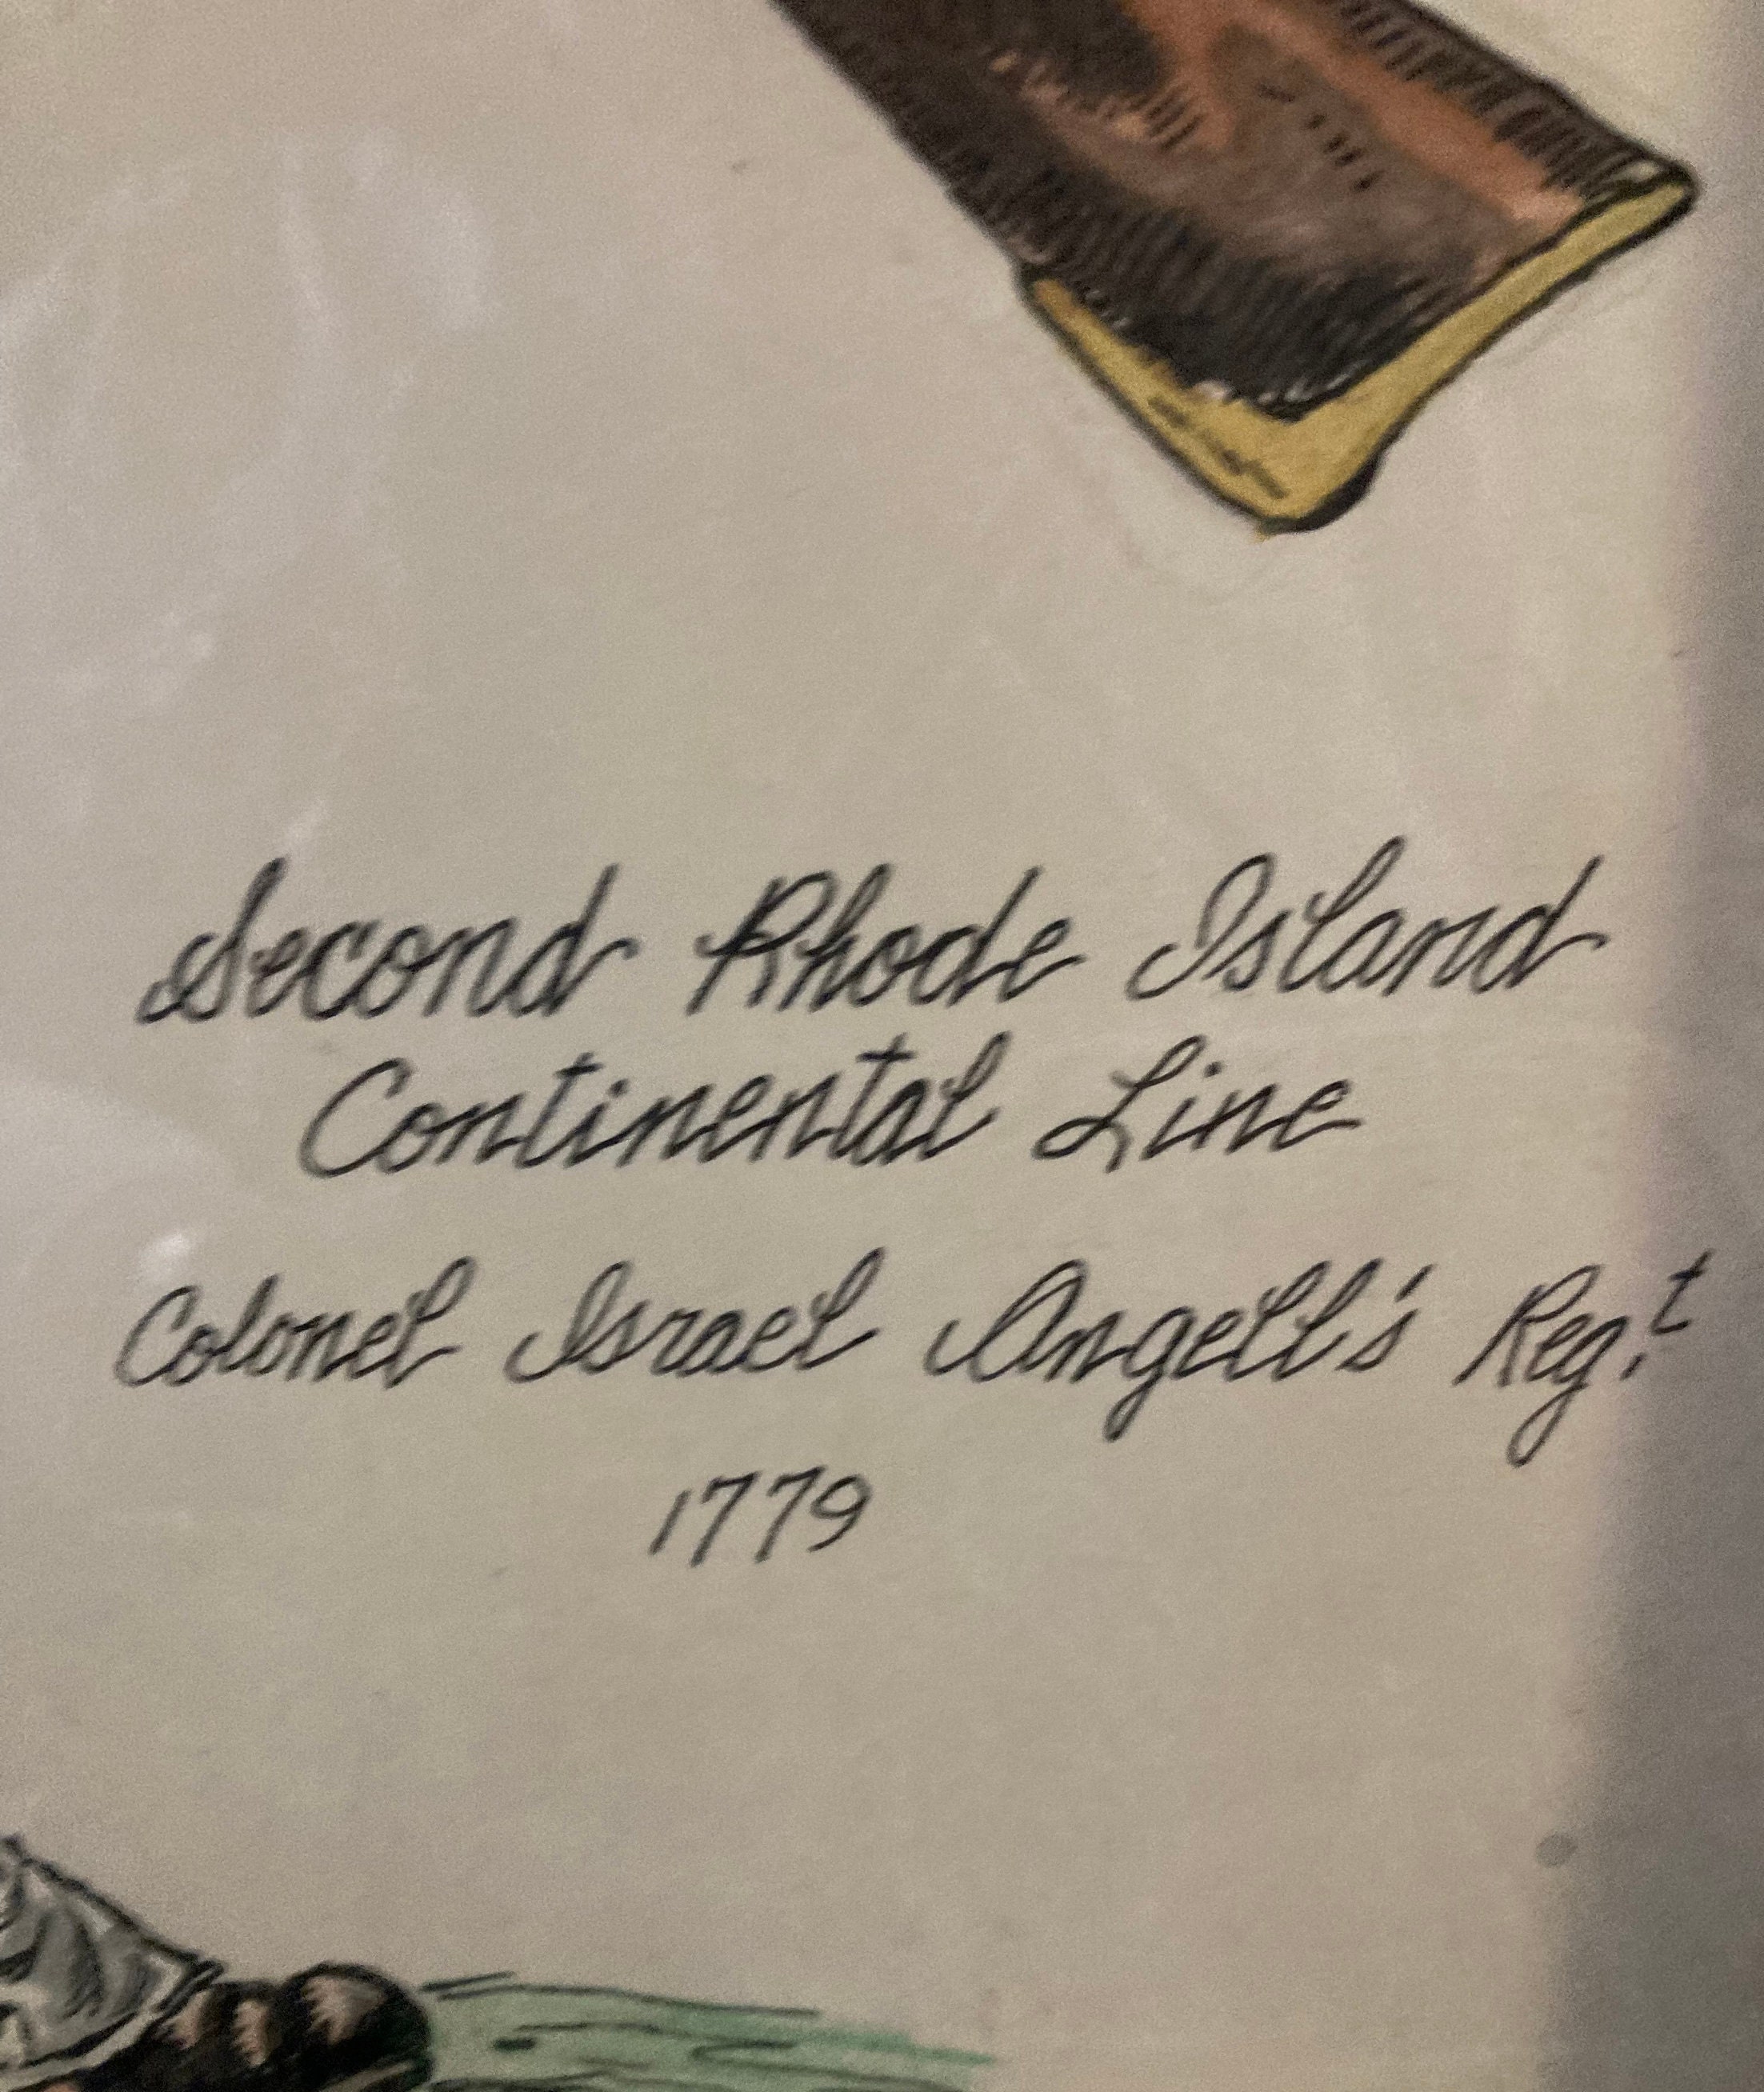 Second Rhode Island
Continental Line
Colonel Israel Angell's Reg.t
1779